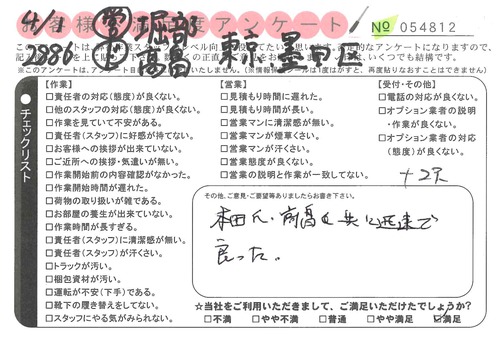 お客様満足度アンケート
4/1 営 堀部
No 054812
2886 高畠 東京 墨田区
※このアンケートは、アンケート目
チェックリスト
【作業】
□責任者の対応(態度)が良くない。
□他のスタッフの対応(態度)が良くない。
□作業を見ていて不安がある。
□責任者(スタッフ)に好感が持てない。
□お客様への挨拶が出来ていない。
□ご近所への挨拶・気遣いが無い。
□作業開始前の内容確認がなかった。
□作業開始時間が遅れた。
□荷物の取り扱いが雑である。
□お部屋の養生が出来ていない。
□作業時間が長すぎる。
□責任者(スタッフ)に清潔感が無い。
□責任者(スタッフ)が汗くさい。
□トラックが汚い。
□梱包資材が汚い。
□運転が不安(下手)である。
□靴下の履き替えをしてない。
□スタッフにやる気がみられない。
【営業】
□見積もり時間に遅れた。
□見積もり時間が長い。
□営業マンに清潔感が無い。
□営業マンが煙草くさい。
□営業マンが汗くさい。
□営業態度が良くない。
□営業の説明と作業が一致してない。
【受付・その他】
□電話の対応が良くない。
□オプション業者の説明
・作業が良くない。
□オプション業者の対応
(態度)が良くない。
+2点
その他、ご意見・ご要望等ありましたらお書き下さい。
本田くん、前高も共に迅速で
良った。
☆当社をご利用いただきまして、ご満足いただけたでしょうか?
□不満 □やや不満 □普通 □やや満足 ☑満足